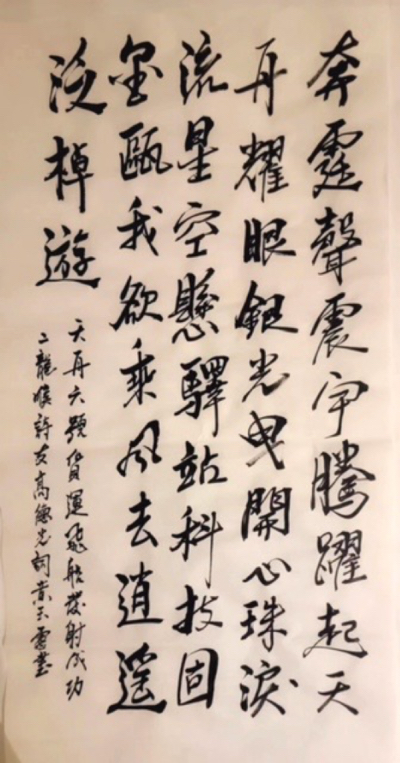 奔霆聲震宇騰躍起天
舟耀眼銀光曳開心珠淚
流星空懸驛站科技固
金甌我欲乘風去逍遙
泛棹遊
天舟六號貨運飛船發射成功
二龍喉詩友高德光詞黃天雲書